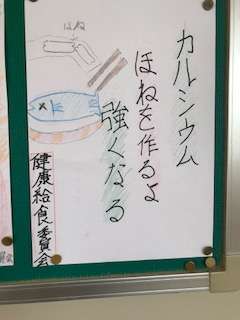 カルシウム
ほねを作るよ
強くなる
ほね
健康給食委員会